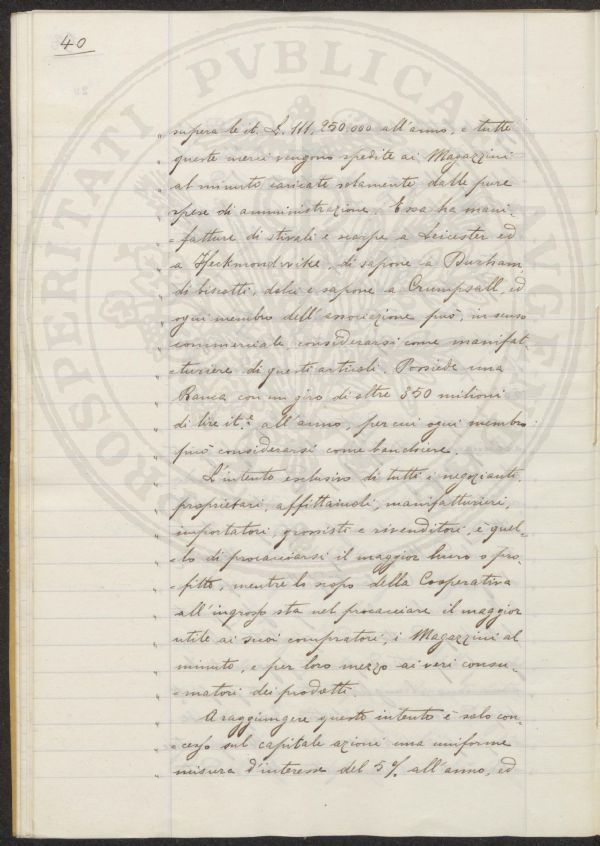 40
„ supera le it. L. 111,250.000 all'anno, e tutte
„ queste merci vengono spedite ai Magazzini
„ al minuto caricate solamente delle pure
„ spese di amministrazione. Essa ha mani-
„ -fatture di stivali e scarpe a Leicester ed
„ a Heckmondwike, di sapone a Durham,
„ di biscotti, dolci e sapone a Crumpsall, ed
„ ogni membro dell'associazione può, in senso
„ commerciale considerarsi come manifat-
„ -turiere di questi articoli. Possiede una
„ Banca con un giro di oltre 350 milioni
„ di lire it.e all'anno, per cui ogni membro
„ può considerarsi come banchiere.
„ L'intento esclusivo di tutti i negozianti,
„ proprietari, affittaiuoli, manifatturieri,
„ importatori, grossisti e rivenditori, è quel-
„ -lo di procacciarsi il maggior lucro o pro-
„ -fitto, mentre lo scopo della Cooperativa
„ all'ingrosso sta nel procacciare il maggior
„ utile ai suoi compratori, i Magazzini al
„ minuto, e per loro mezzo ai veri consu-
„ -matori dei prodotti.
„ A raggiungere questo intento è solo con-
„ -cesso sul capitale azioni una uniforme
„ misura d'interesse del 5% all'anno, ed
PROSPERITATI PVBLICAE AVGENDAE